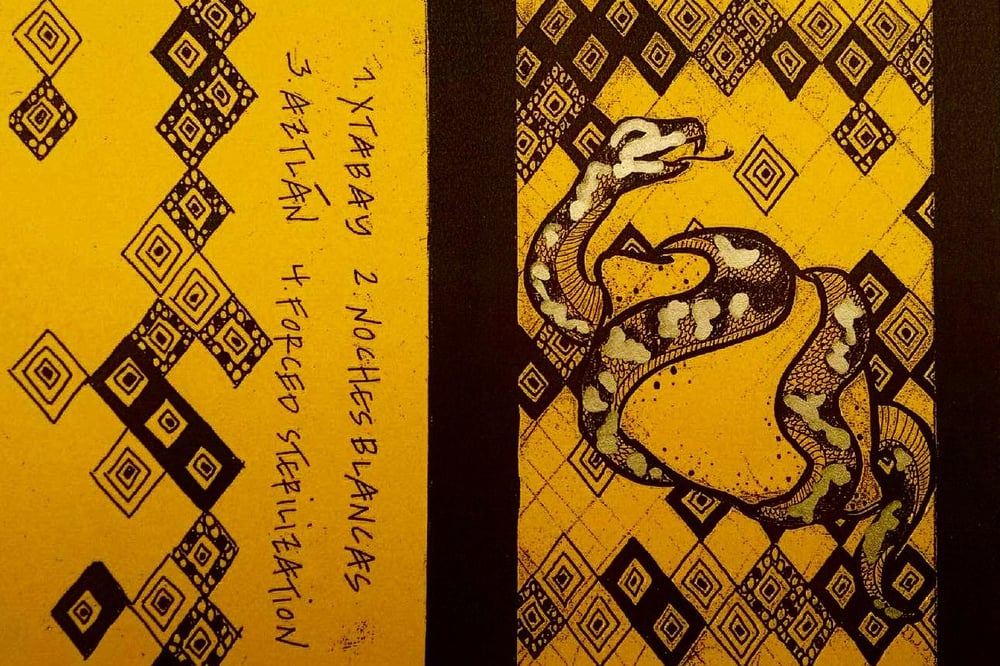 1. XTABAY 2. NOCHES BLANCAS
3. AZTLÁN 4. FORCED STERILIZATION